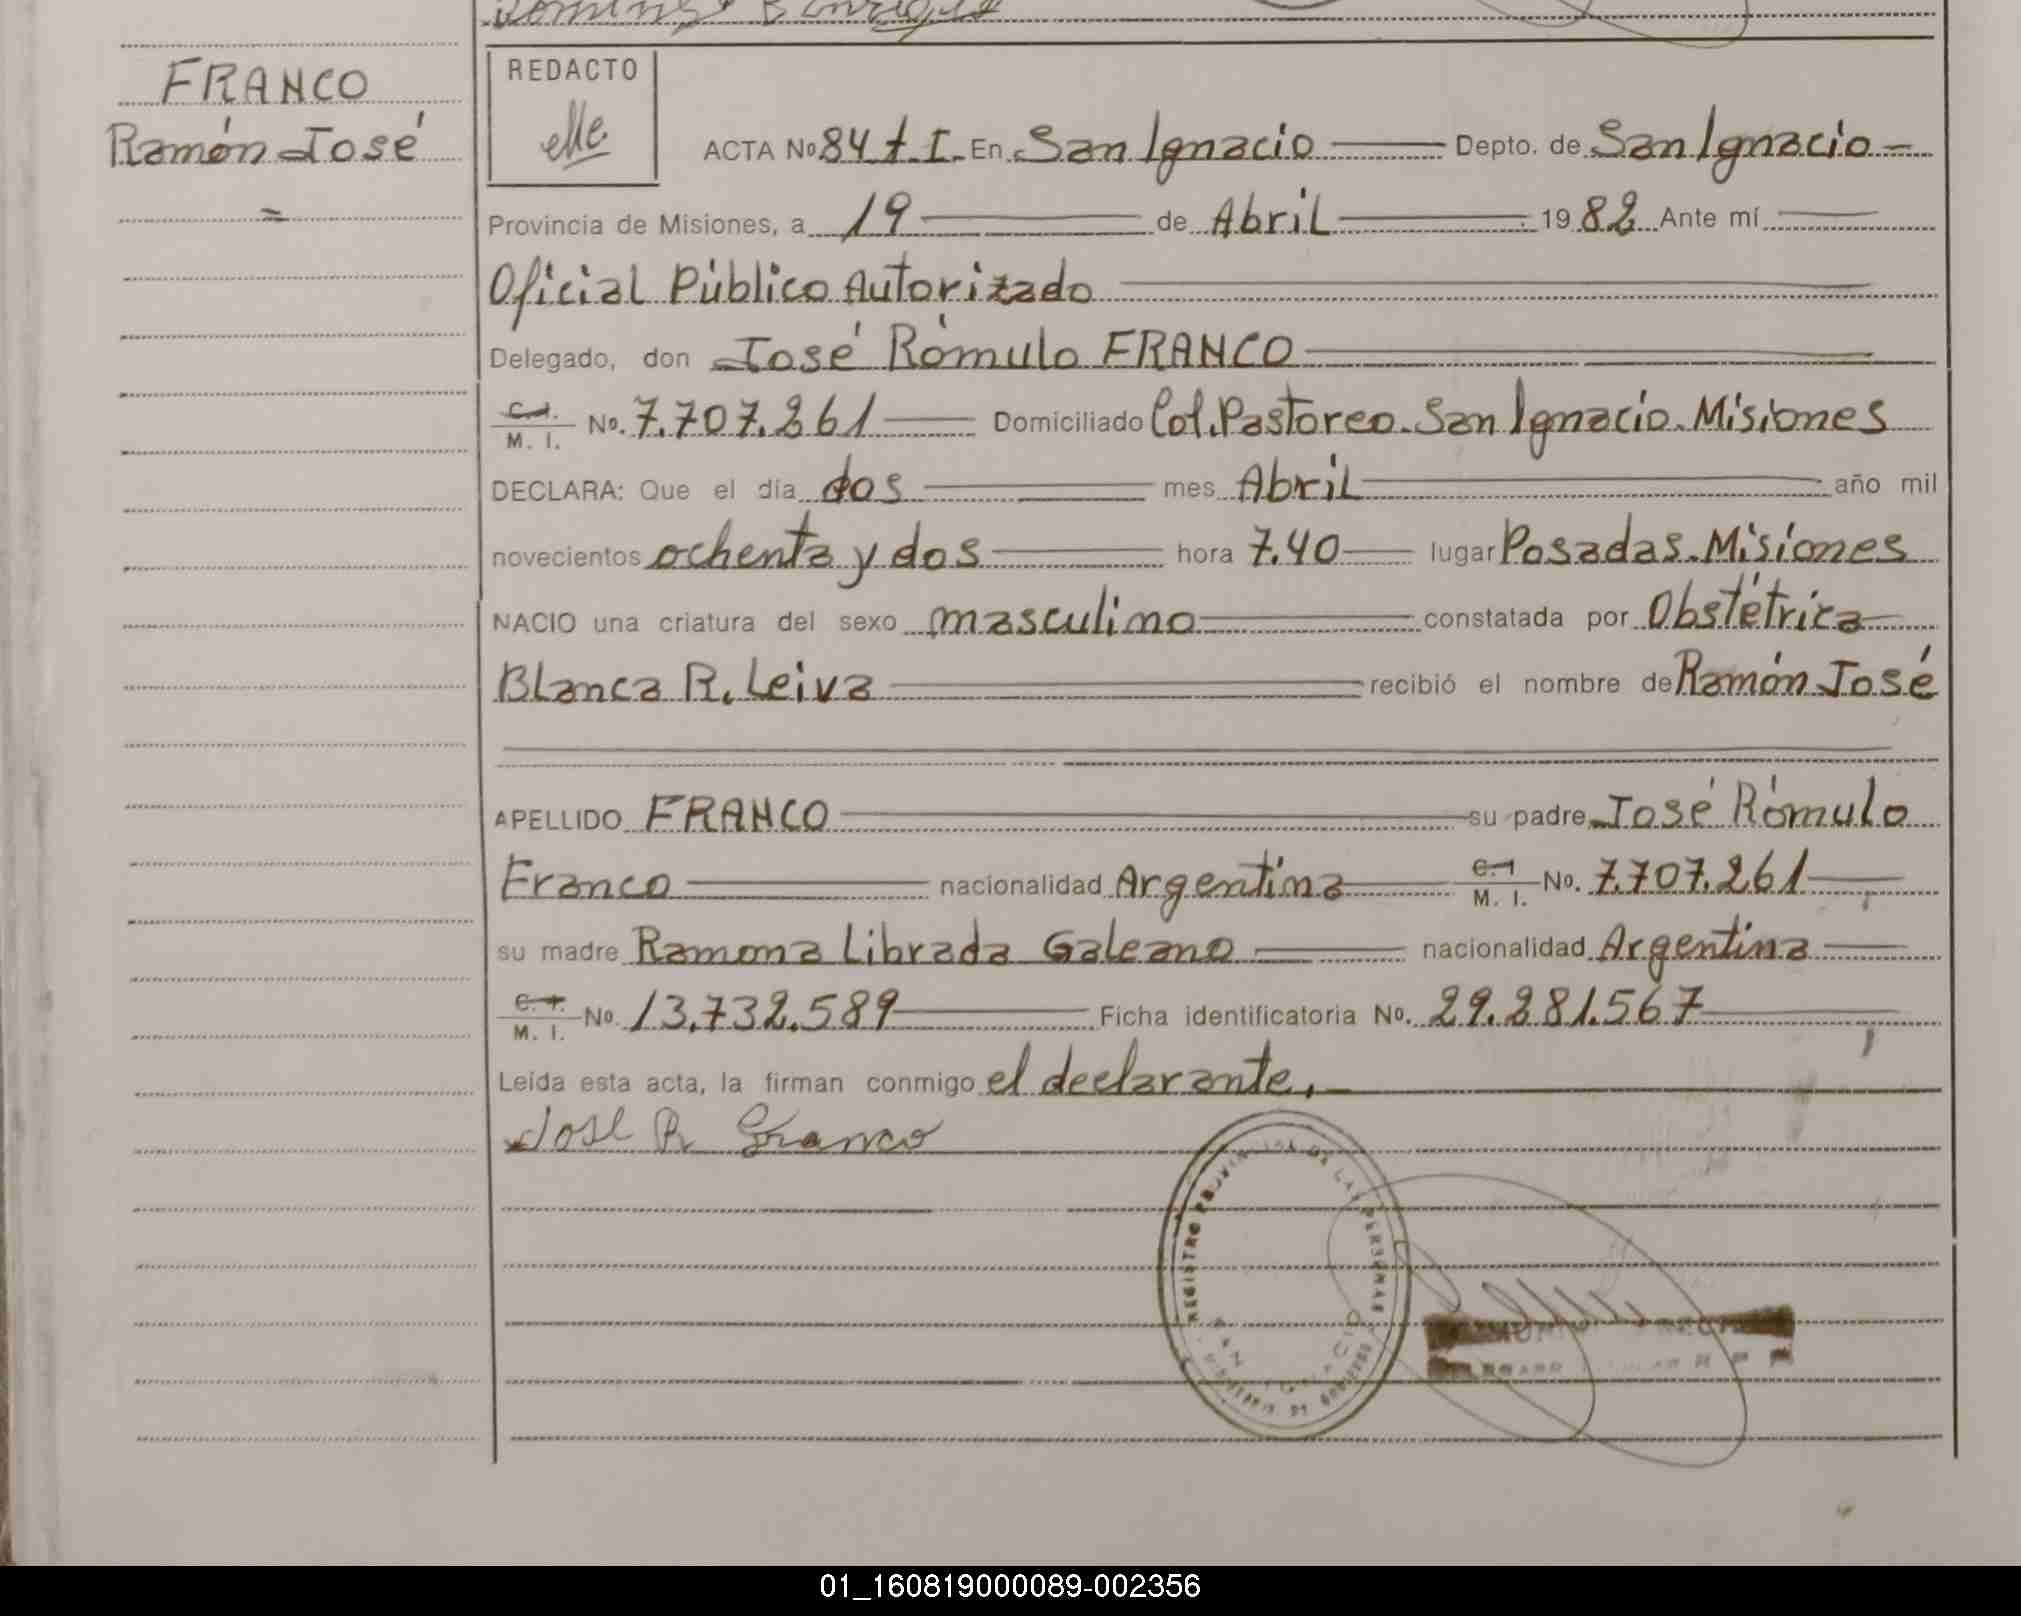 FRANCO
Ramón José
=
REDACTO
ACTA No 84 t. I. En San Ignacio Depto. de San Ignacio
Provincia de Misiones, a 19 de Abril 1982 Ante mí
Oficial Público Autorizado
Delegado, don José Rómulo FRANCO
C.I. M. I. No. 7.707.261 Domiciliado Col. Pastoreo. San Ignacio. Misiones
DECLARA: Que el día dos mes Abril año mil
novecientos ochenta y dos hora 7.40 lugar Posadas. Misiones
NACIO una criatura del sexo masculino constatada por Obstétrica
Blanca R. Leiva recibió el nombre de Ramón José
APELLIDO FRANCO su padre José Rómulo
Franco nacionalidad Argentina C.I M. I. No. 7.707.261
su madre Ramona Librada Galeano nacionalidad Argentina
C.I. M. I. No. 13.732.589 Ficha identificatoria No. 29.281.567
Leída esta acta, la firman conmigo el declarante.
José R Franco
REGISTRO PROVINCIAL DE LAS PERSONAS
SAN IGNACIO
MINISTERIO DE GOBIERNO
01_160819000089-002356